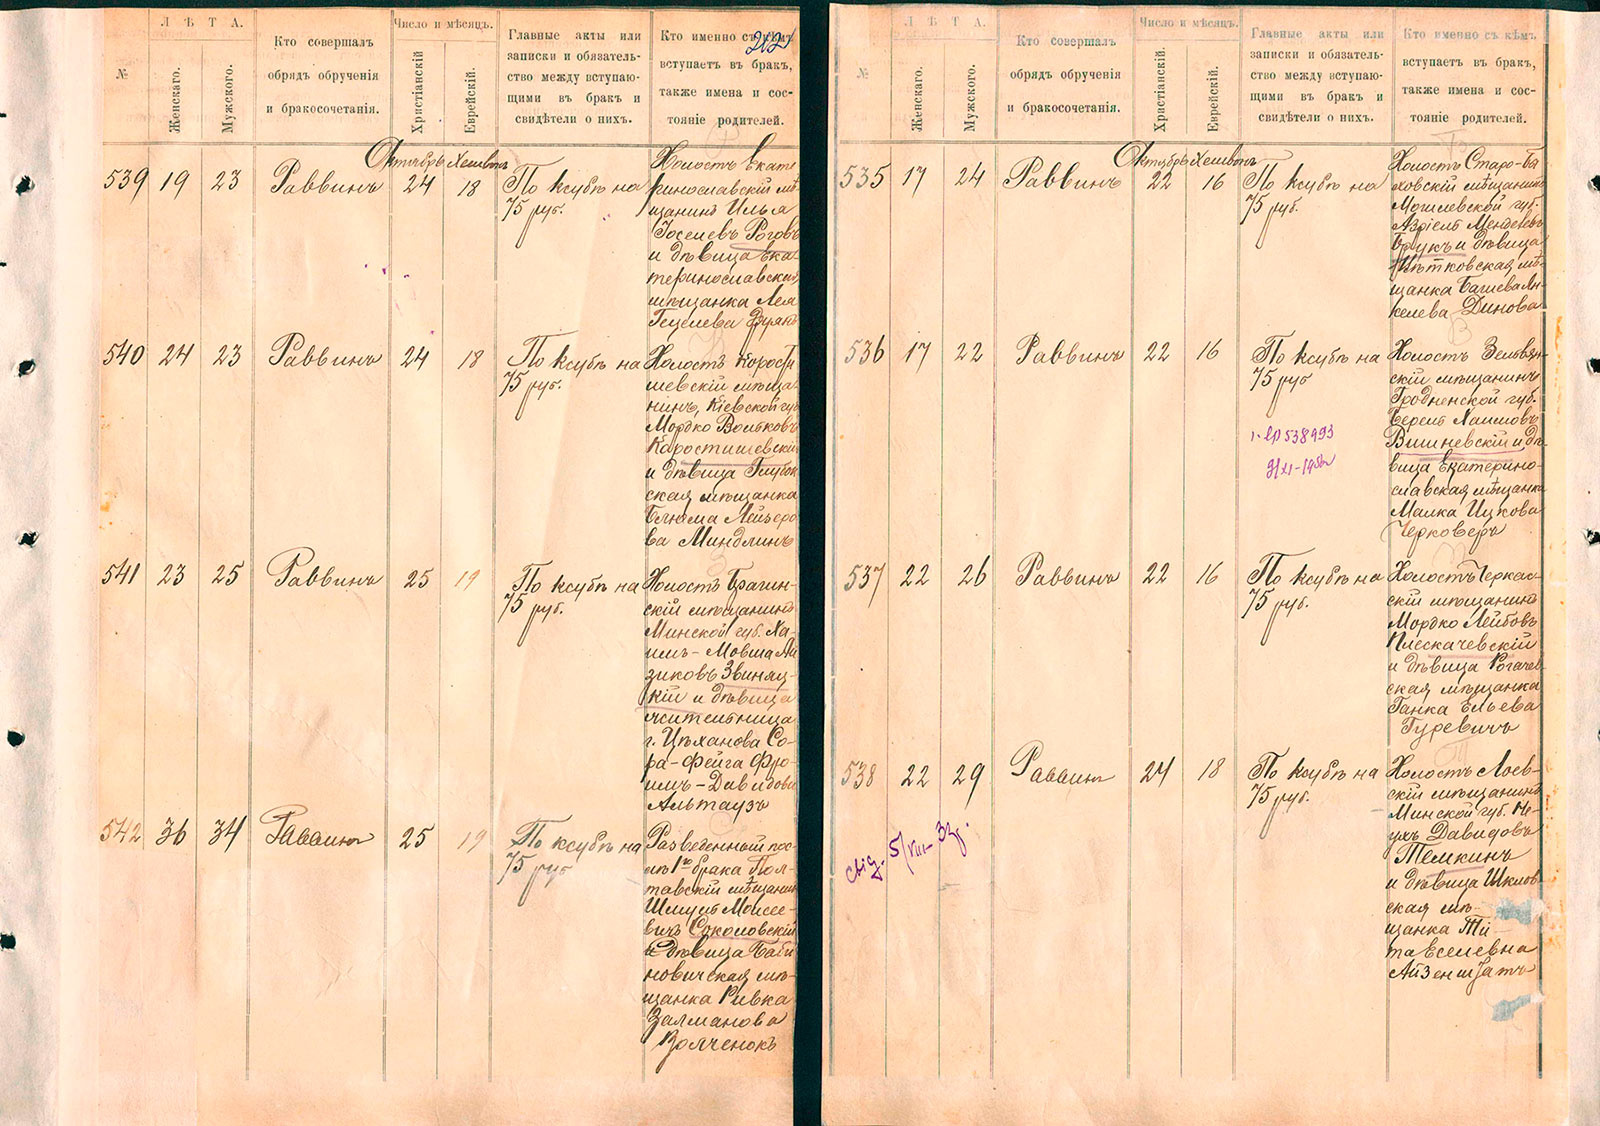 №
ЛѢТА.
Женскаго.
Мужского.
Кто совершалъ
обрядъ обрученія
и бракосочетанія.
Число и мѣсяцъ.
Христіанскій
Еврейскій.
Главные акты или
записки и обязатель-
ство между вступаю-
щими въ бракъ и
свидѣтели о нихъ.
Кто именно съ кѣмъ
вступаетъ въ бракъ,
также имена и сос-
тояніе родителей.
Октябрь Хешвонъ
539 19 23 Раввинъ 24 18
По ксубѣ на
75 руб.
Холостъ Екате
ринославскій мѣ
щанинъ Илья
Іоселевъ Роговъ
и дѣвица Ека-
теринославская
мѣщанка Лея
Гецелева
540 24 23 Раввинъ 24 18
По ксубѣ на
75 руб.
Холостъ Корости
шевскій мѣща-
нинъ, Кіевской губ.
Мордко Вольковъ
Каростишевскій
и дѣвица Глубок
ская мѣщанка
Блюма Лейзеро
ва Миндлинъ
541 23 25 Раввинъ 25 19
По ксубѣ на
75 руб.
Холостъ Брагин-
скій мѣщанинъ
Минской губ. Ха-
имъ-Мовша Ай
зиковъ Звиняц-
кій и дѣвица
жительница
г. Цѣханова Со-
ра-Фейга Фро-
имъ-Давидова
Альтаузъ
542 36 34 Раввинъ 25 19
По ксубѣ на
75 руб
Разведенный пос-
лѣ 1го брака Пол-
тавскій мѣщанинъ
Шмуль Моисее-
вичъ Соколовскій
и дѣвица Баби
новичская мѣ-
щанка Ривка
Залманова
Волченокъ
№
ЛѢТА.
Женскаго.
Мужского.
Кто совершалъ
обрядъ обрученія
и бракосочетанія.
Число и мѣсяцъ.
Христіанскій
Еврейскій.
Главные акты или
записки и обязатель-
ство между вступаю-
щими въ бракъ и
свидѣтели о нихъ.
Кто именно съ кѣмъ
вступаетъ въ бракъ,
также имена и сос-
тояніе родителей.
Октябрь Хешвонъ
535 17 24 Раввинъ 22 16
По ксубѣ на
75 руб.
Холостъ Старо-Бы
ховскій мѣщанинъ
Могилевской губ.
Азріель Менделевъ
Брукъ и дѣвица
Щѣтковская мѣ-
щанка Башева Ян-
келева Динова
536 17 22 Раввинъ 22 16
По ксубѣ на
75 руб
Холостъ Зельвян-
скій мѣщанинъ
Гродненской губ.
Берель Хаимовъ
Вишневскій и дѣ
вица Екатерино-
славская мѣщанка
Малка Ицкова
Черковеръ
538993
537 22 26 Раввинъ 22 16
По ксубѣ на
75 руб.
Холостъ Черкас-
скій мѣщанинъ
Мордко Лейбовъ
Плескачевскій
и дѣвица Рогачев
ская мѣщанка
Ганка Ельева
Гуревичъ
538 22 29 Раввинъ 24 18
По ксубѣ на
75 руб.
Холостъ Лоев-
скій мѣщанинъ
Минской губ. Но-
ухъ Давидовъ
Темкинъ
и дѣвица Шклов
ская мѣ-
щанка Ти-
та Евселевна
Айзенштатъ
свід. 5/VIII-33р.